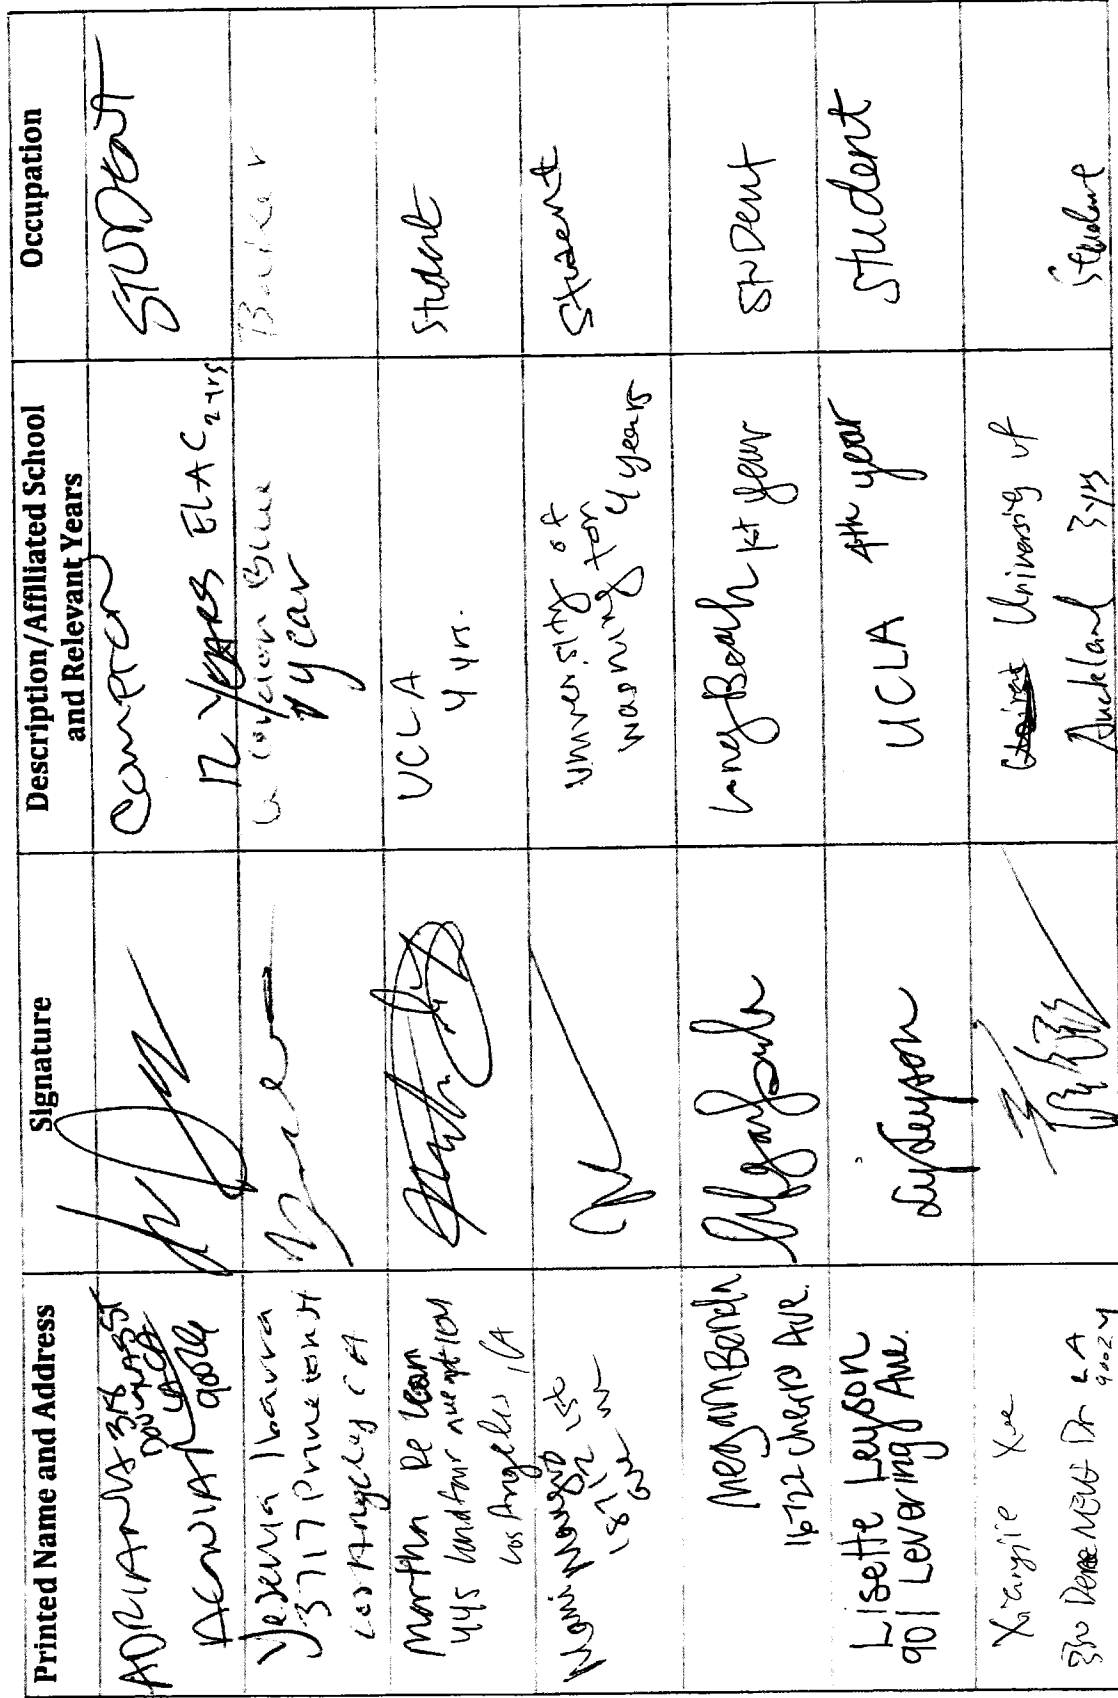 Printed Name and Address
Signature
Description/Affiliated School
and Relevant Years
Occupation
ADRIANA 318
DOUGLAS ST
LA CA
90026
COMPTON
12 YEARS ELAC 2 yrs
STUDENT
Yesenia Ibarra
3717 Princeton St
Los Angeles CA
Blue
1 year
Martha De Leon
445 Landfair
Los Angeles, CA
UCLA
4 yrs.
Student
187
University of
Washington 4 years
Student
Megan
16722 Cherry Ave.
Long Beach 1st year
STUDENT
Lisette Leyson
901 Levering Ave.
UCLA 4th year
student
Xiangjie Xue
330 DENEVE Dr LA
90024
University of
Auckland 3yrs
Student